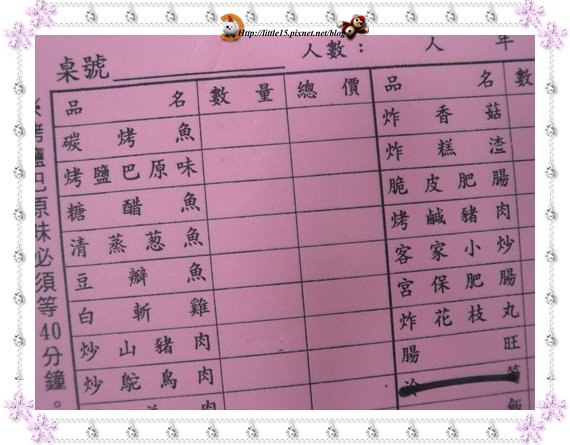 Http://little15.pixnet.net/blog
桌號
人數： 人 年
品名 數量 總價
碳烤魚
烤鹽巴原味
糖醋魚
清蒸葱魚
豆瓣魚
白斬雞
炒山豬肉
炒鴕鳥肉
品名 數
炸香菇
炸糕渣
脆皮肥腸
烤鹹豬肉
客家小炒
宮保肥腸
炸花枝丸
腸旺
烤鹽巴原味必須等40分鐘。